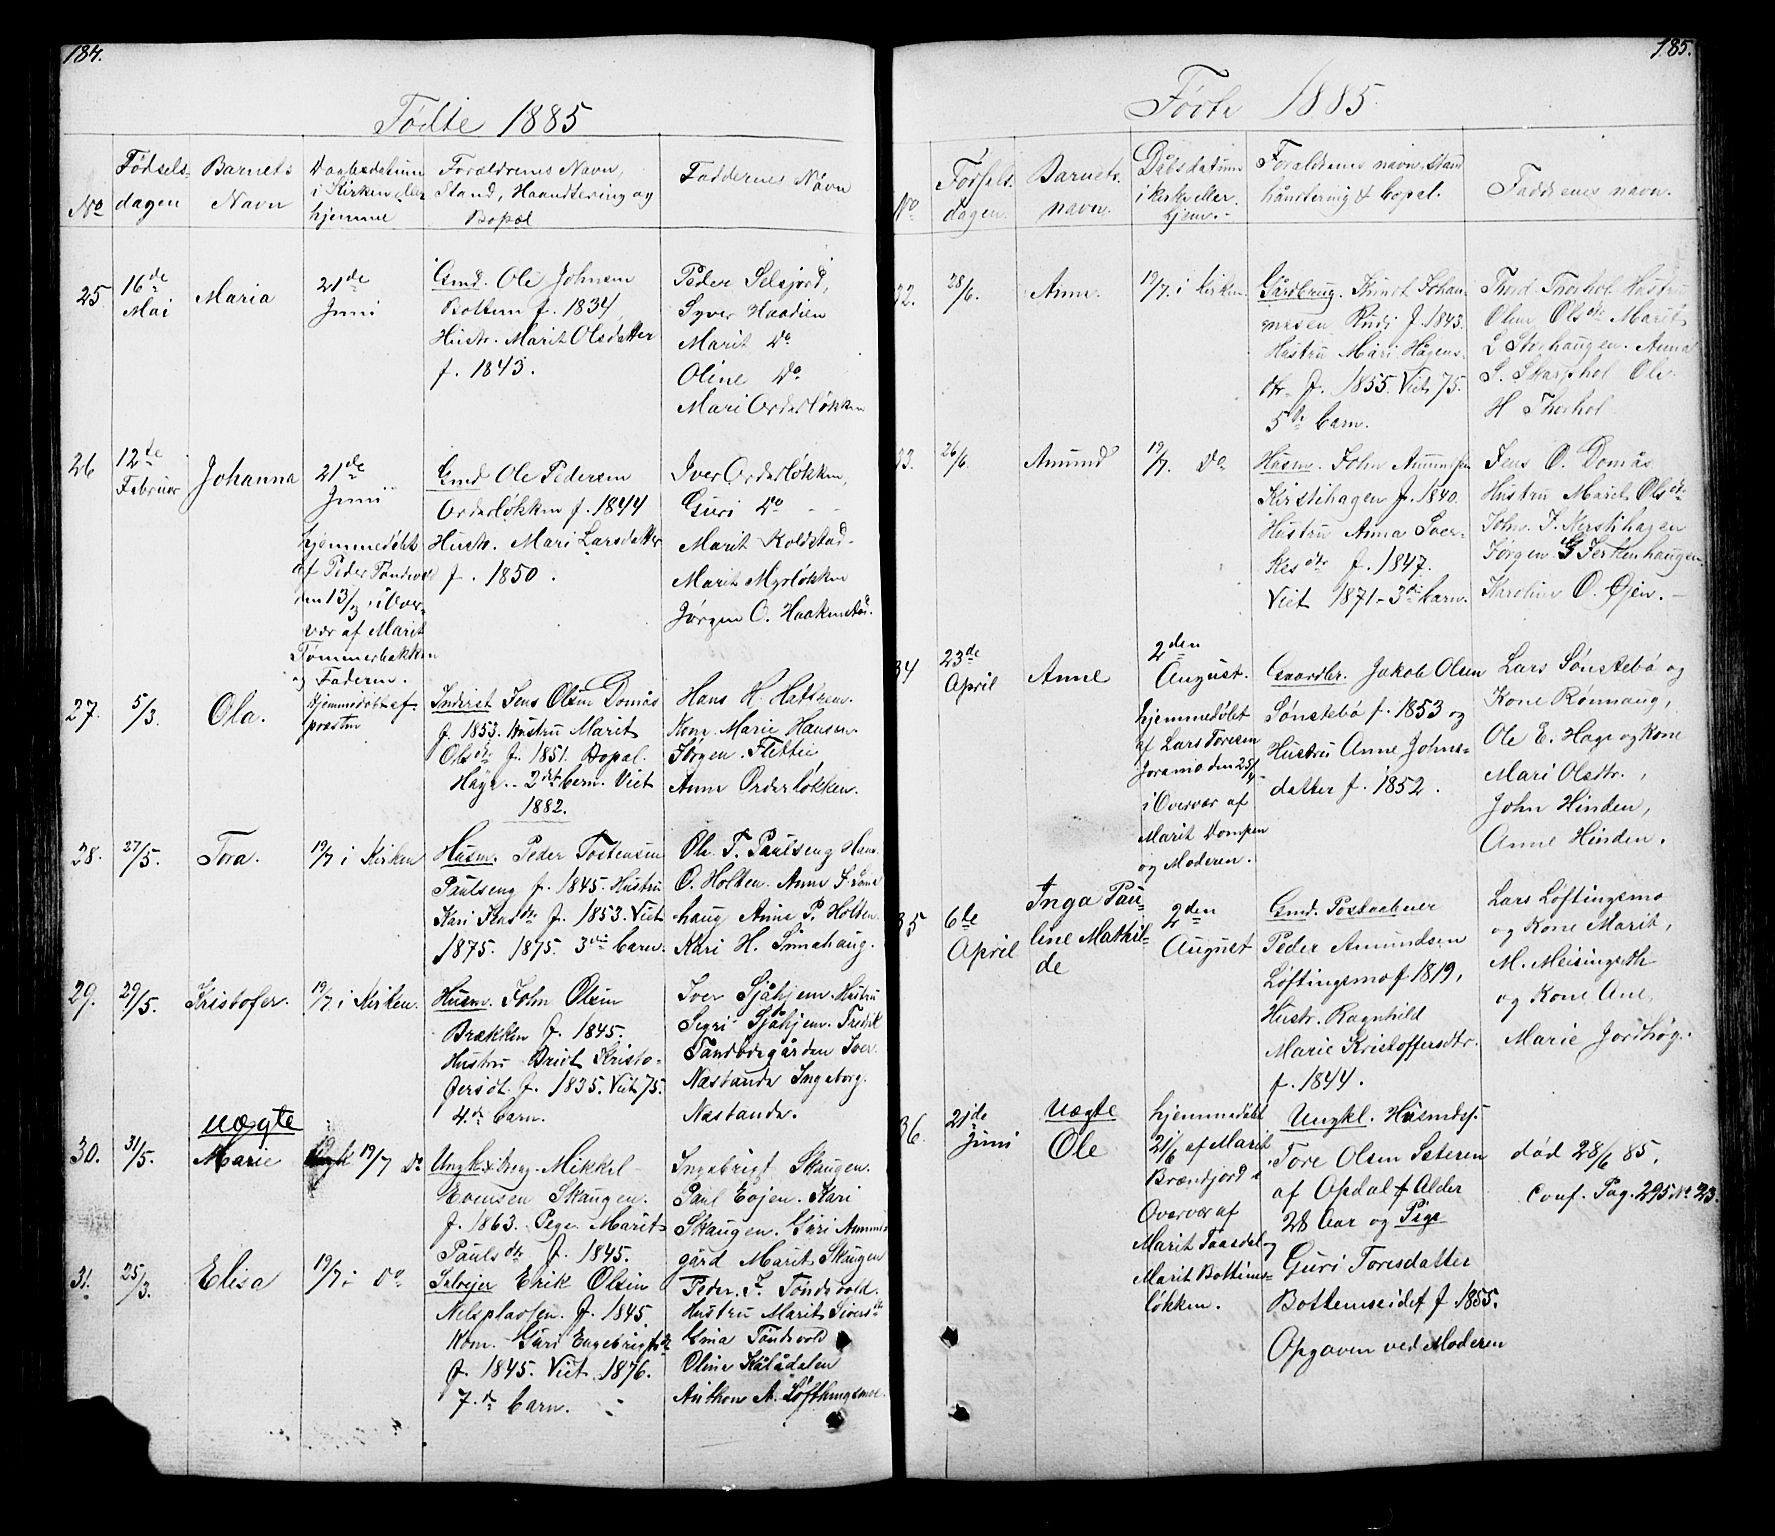 184.
Födte 1885
No
Födsels-
dagen
Barnets
Navn
Daabsdatum
i Kirken eller
hjemme
Forældrenes Navn,
Stand, Haandtering og
Bopæl
Faddernes Navn
25
16de
Mai
Maria
21de
Juni
Gmd. Ole Johnsen
Bottem f. 1834,
Hustr. Marit Olsdatter
f. 1843.
Peder Selsjord,
Syver Haadien
Marit Do
Oline Do
Mari Orderløkken
26
12te
Februar
Johanna
21de
Juni
hjemmedøbt
af Peder Tandevold
den 13/2 i Over-
vær af Marit
Tømmerbakken
og Faderen.
Gmd Ole Pedersen
Orderløkken f. 1844
Hustr. Mari Larsdatter
f. 1850.
Iver Orderløkken,
Guri Do
Marit Koldstad
Marit Myrløkken
Jørgen O. Haakenstad.
27.
5/3.
Ola.
hjemmedøbt af
præsten
Inderst Jens Olsen Domås
f. 1853. Hustru Marit
Olsdtr f. 1851. Bopæl.
Hage. 2det barn. Viet
1882.
Hans H. Hatseen.
Kone Marie Hansen.
Jørgen Flittie
Anne Orderløkken.
28.
27/5.
Tora.
19/7 i Kirken
Husm. Peder Tostensen
Paulseng f. 1845. Hustru
Kari Jensdtr f. 1853. Viet
1875. 1875. 3die barn.
Ole T. Paulseng Hans
O. Holten. Anne
haug Anne P. Holten
Kari H. Sinnahaug.
29.
29/5.
Kristofer.
19/7 i Kirken.
Husm. John Olsen
Brækken f. 1845.
Hustru Brit Kristo-
fersdt. f. 1835. Viet 75.
4de barn.
Iver Sjåhjem. Hustru
Segri Sjåhjem. Fredrik
Tandbergården Iver
Næstande Ingeborg.
Næstande.
30.
31/5.
Uægte
Marie
19/7 Do
Ungk. Mikkel
Evensen Skaugen.
f. 1863. Pige Marit
Paulsdtr f. 1845.
Ingebrigt Skaugen.
Paul Eøjen. Kari
Skaugen. Guri Ammi-
gård Marit Skaugen
31.
25/3.
Elisa
19/7 i Do
Selvejer Erik Olsen
Nelsplassen. f. 1845.
Kone Guri Engebrigtsdt
f. 1845. Viet 1876.
7de barn.
Peder. J. Tøndevold.
Hustru Marit Siversdt
Gina Tøndevold
Oline Kålådalen
Anthon A. Løftingsmoe.
185.
Födte 1885.
No
Fødsels-
dagen.
Barnets
navn.
Dåbsdatum
i kirke eller
hjem.
Forældrenes navn, stand
håndtering & bopæl.
Faddernes navn.
32.
28/6.
Anne.
19/7. i Kirken
Gårdbrug. Knut Johan-
nesen Rudi f. 1843.
Hustru Mari Hågens-
dtr f. 1855. Viet 75.
5te barn.
Thord Thorhol Hustru
Oline Olsdtr Marit
L Storhaugen. Anna
S. Skarphol Ole
H Thorhol
33.
26/6.
Amund
19/7. Do
Husm. John Amundsen
Kirstihagen f. 1840.
Hustru Anna Sver-
kesdtr f. 1847.
Viet 1871. 3die barn.
Jens O. Domås
Hustru Marit Olsdtr
John J. Kerstihagen
Jørgen G Jerkenhaugen
Karoline O. Øjen.
34
23de
April
Anne
2den
August.
hjemmedøbt
af Lars Toresen
Joramo den 25/4
i Overvær af
Marit Dompen
og Moderen.
Gaardbr. Jakob Olsen
Sønstebø f. 1853 og
Hustru Anne Johns-
datter f. 1852.
Lars Sønstebø og
Kone Rønnaug,
Ole E. Hage og Kone
Mari Olsdtr.,
John Hinden,
Anne Hinden.
35
6te
April
Inga Pau-
line Mathil-
de
2den
August
Gmd. Postaabner
Peder Amundsen
Løftingsmo f 1819,
Hustr. Ragnhild
Marie Kristoffersdtr.
f. 1844.
Lars Løftingsmo
og Kone Marit,
M. Meisingseth
og Kone Ane,
Marie Jordhøg.
36.
21de
Juni
Uægte
Ole
hjemmedøbt
21/6 af Marit
Brændjord i
Overvær af
Marit Taasdal og
Marit Bottems-
løkken.
Ungkl. Husmdsf.
Tore Olsen Seteren
af Opdal f Alder
28 Aar og Pige
Guri Toresdatter
Bottemseidet f 1855.
Opgaven ved Moderen
død 28/6 85.
Conf. Pag. 295 No 23.